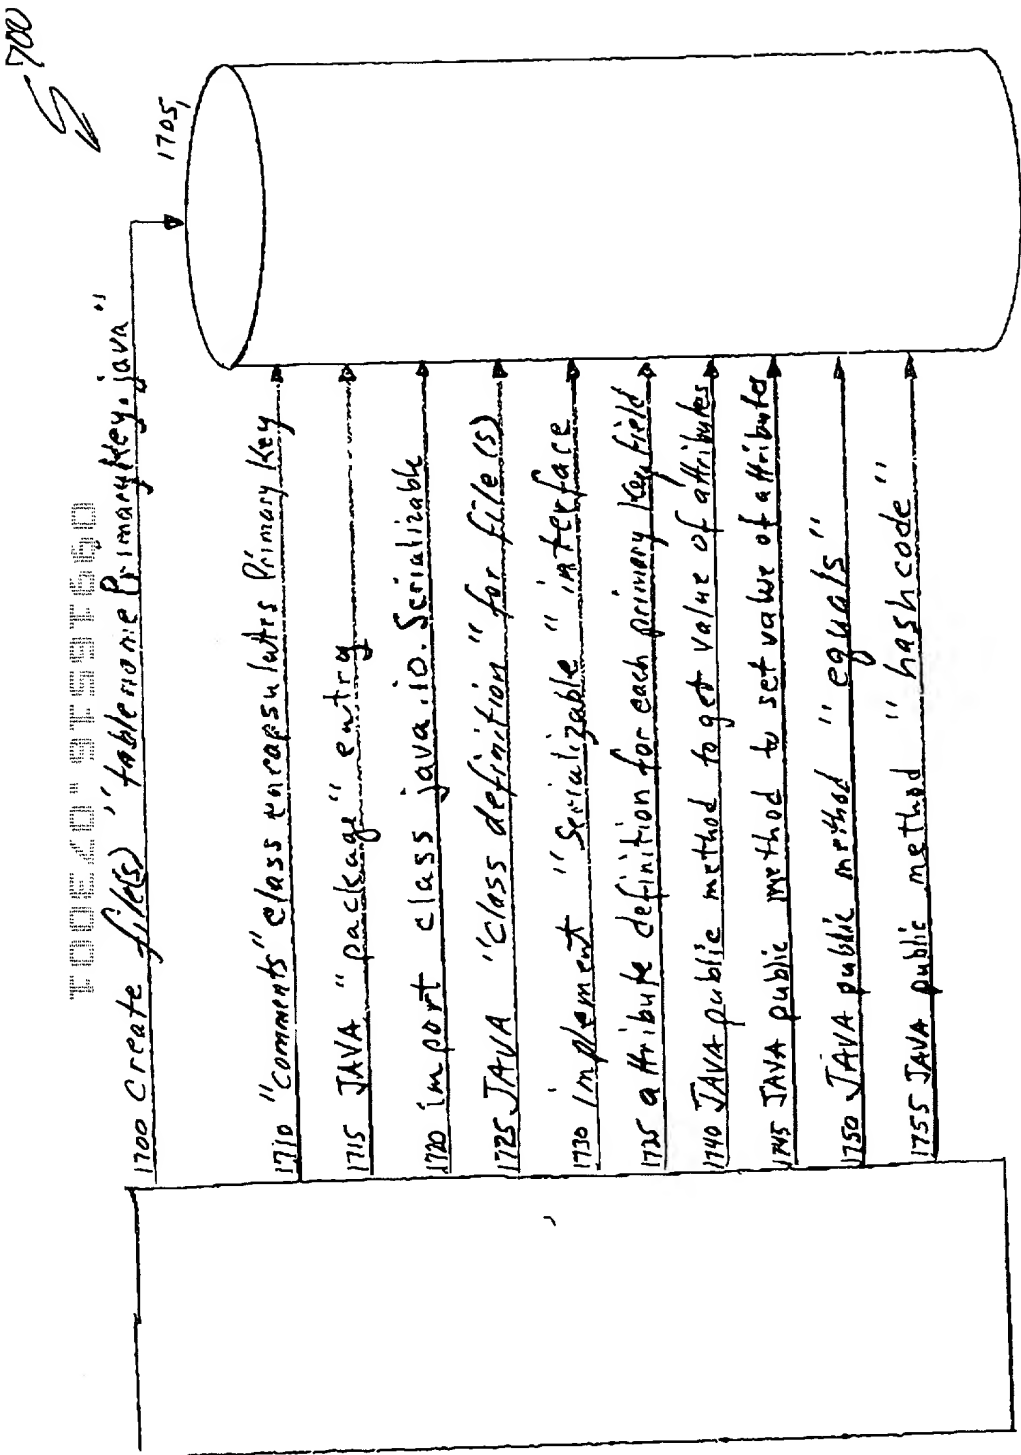 5-700
1705
1700 Create file(s) "tablenamePrimaryKey.java"
1710 "comments" class encapsulates Primary Key
1715 JAVA "package" entry
1720 import class java.io.Serializable
1725 JAVA "class definition" for file(s)
1730 implement "Serializable" interface
1725 attribute definition for each primary key field
1740 JAVA public method to get value of attributes
1745 JAVA public method to set value of attributes
1750 JAVA public method "equals"
1755 JAVA public method "hashcode"